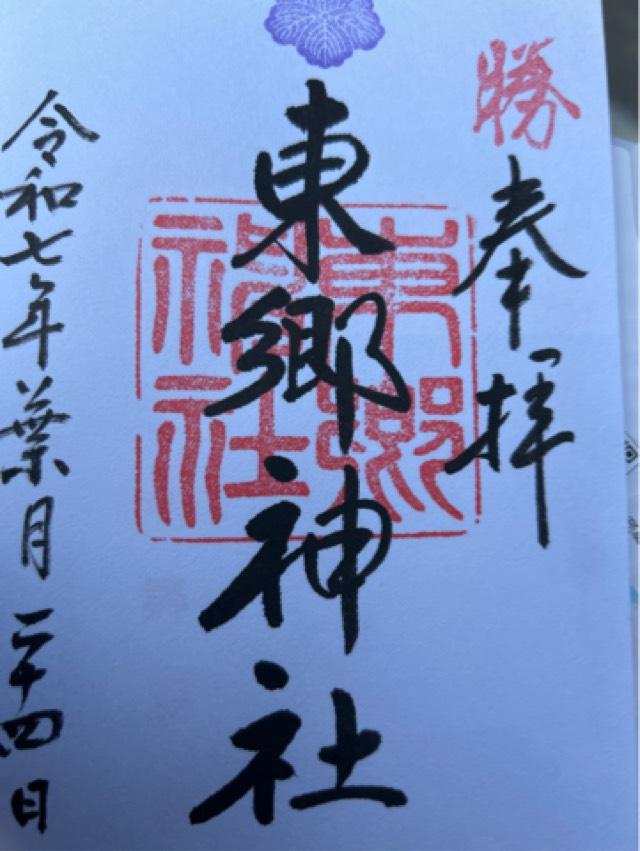 勝
奉拝
東郷神社
東郷神社
令和七年葉月二十四日